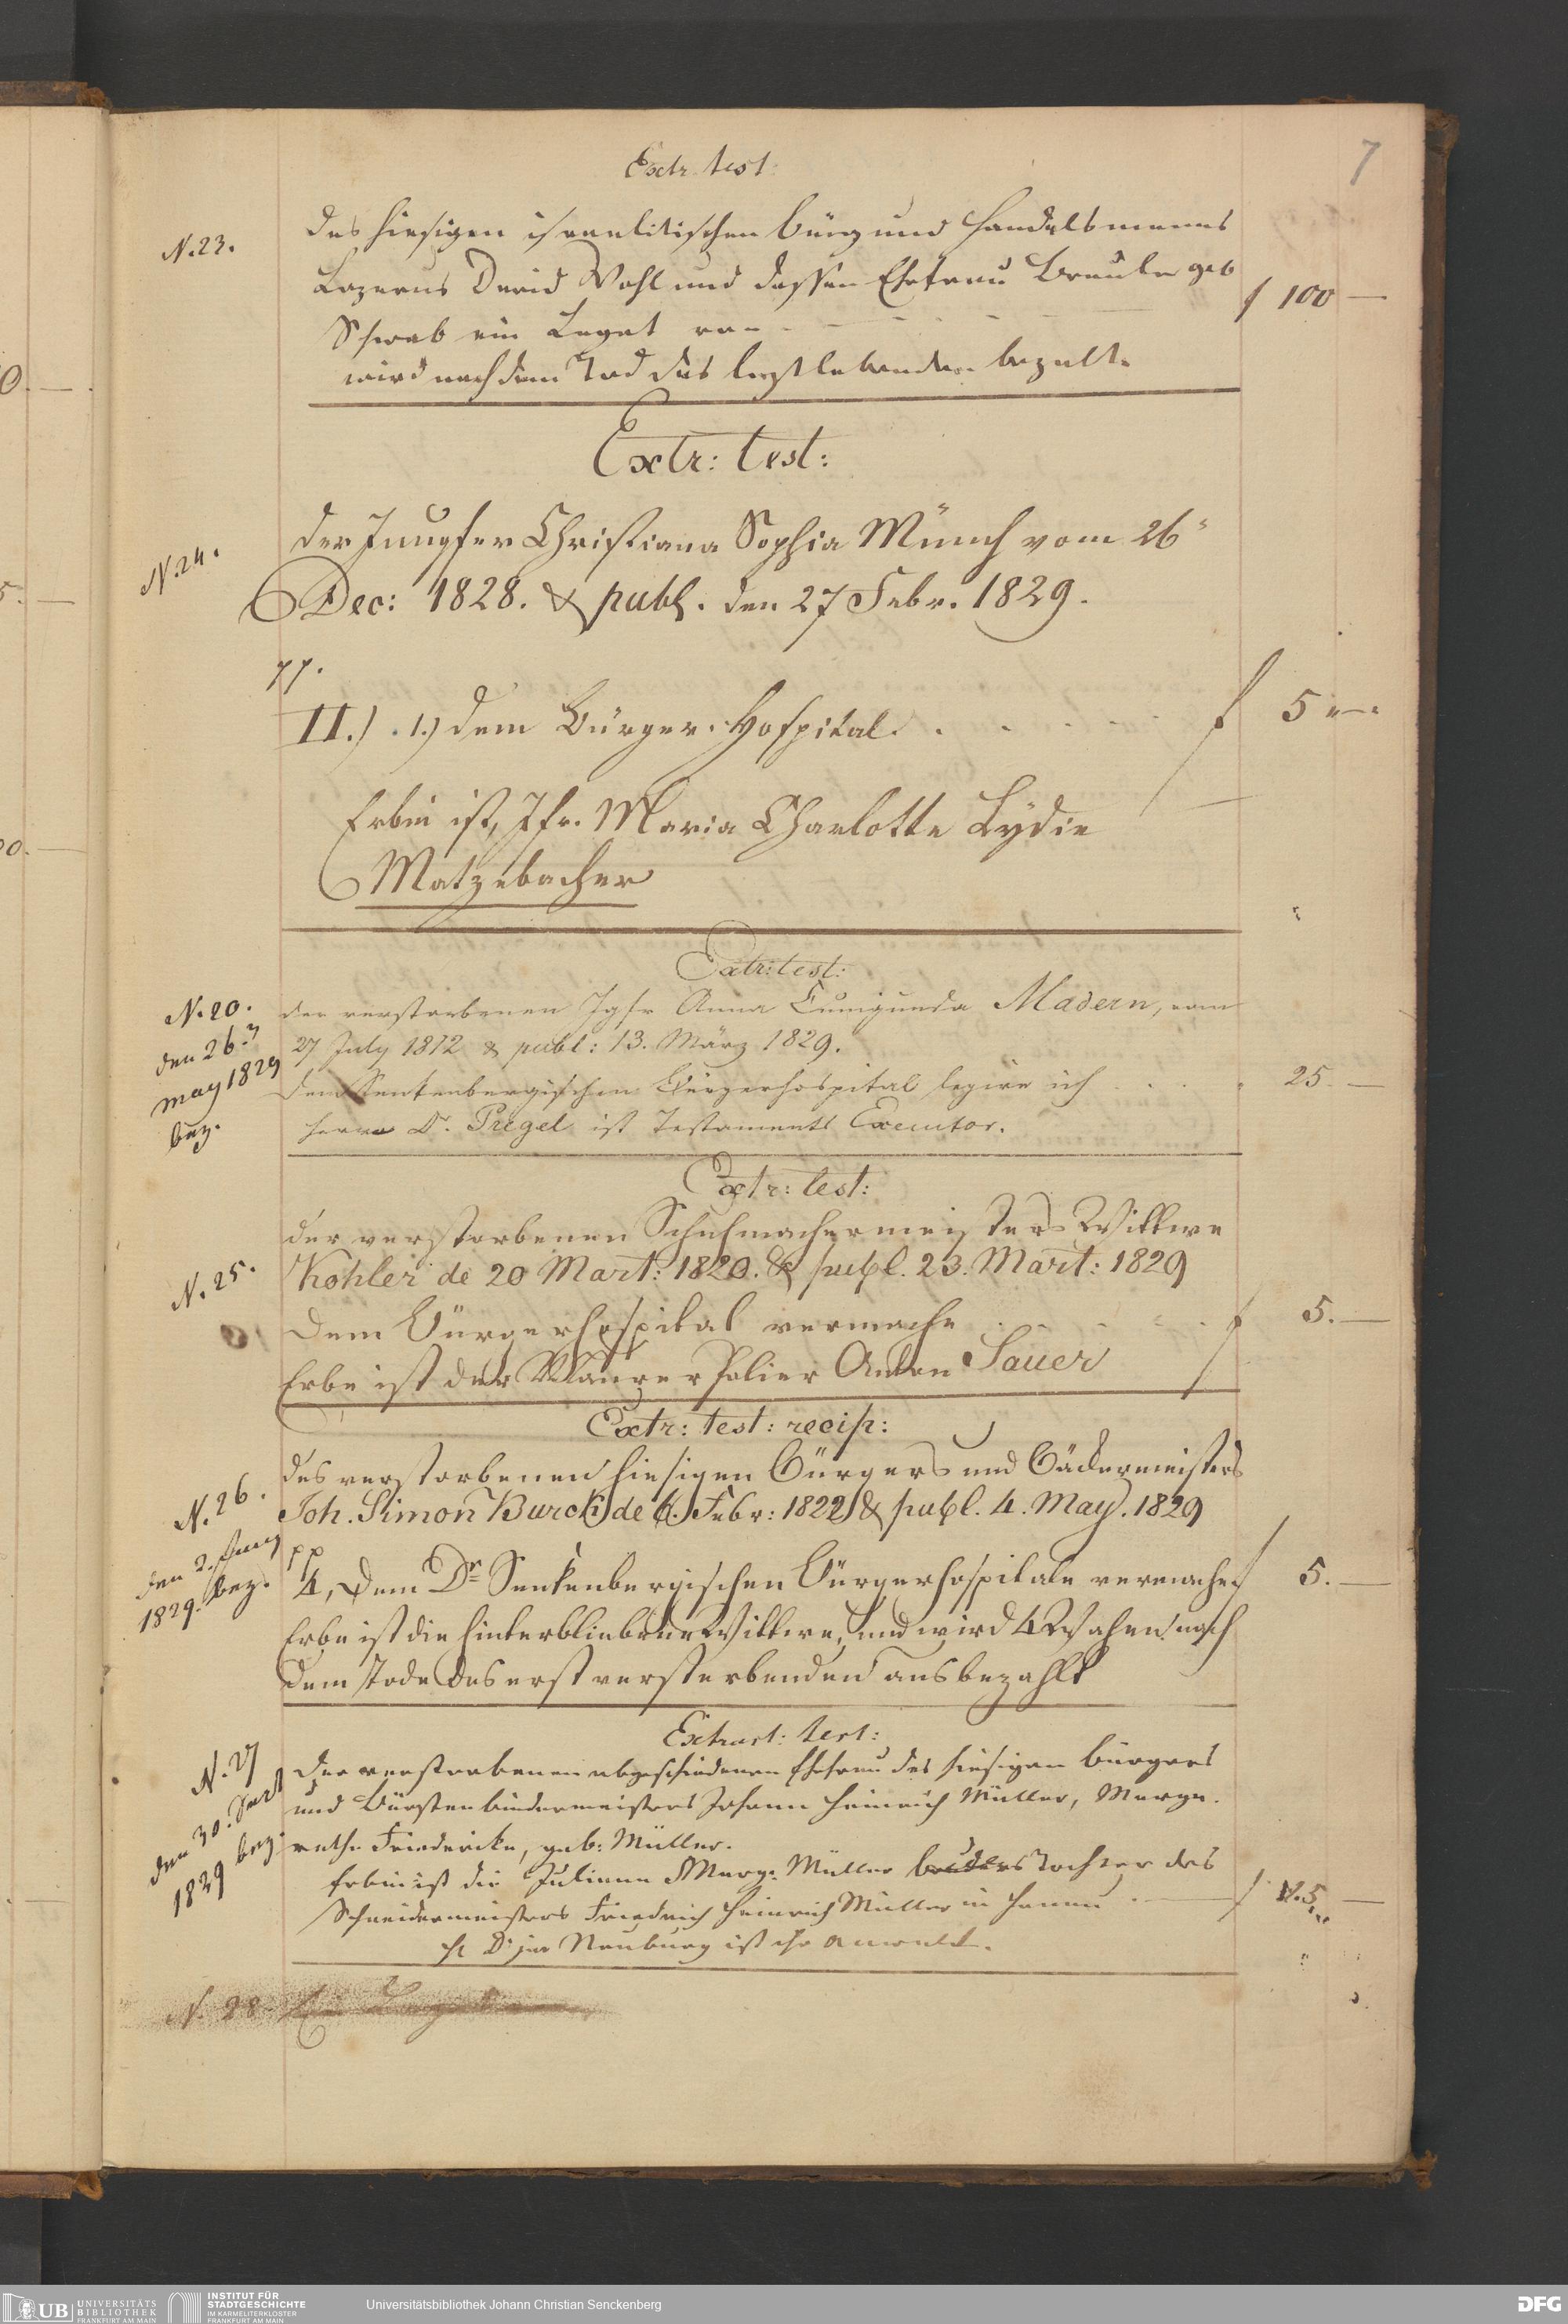 7
Extr. test:
N. 23.
des hiesigen israelitischen Bürg und Handelsmanns
Lazarus David Wohl und dessen Ehefrau Breule geb
Schwab ein Legat von - - - - f 100 —
wird nach dem Tod des letztlebenden bezalt.
Extr: test:
N. 24.
der Jungfer Christiana Sophia Münch vom 26
Dec: 1828. & publ. den 27 Febr. 1829.
pp.
II.) 1.) dem Bürger-Hospital . . . . f 5 „—.
Erbin ist, Jfr. Maria Charlotte Lÿdie
Matzebacher
Extr: test:
N. 20.
den 26.
may 1829
bez.
der verstorbenen Jgfr Anna Cunigunda Madern, vom
27 July 1812 & publ: 13. März 1829.
dem Senkenbergischen Bürgerhospital legire ich . . . . 25. —
Herr D. Pregel ist Testaments Executor.
Extr: test:
N. 25.
der verstorbenen Schuhmachermeisters Wittwe
Kohler de 20 Mart: 1820. & publ. 23. Mart: 1829
Dem Bürgerhospital vermache . . . . f 5. —
Erbe ist der Maurer Polier Anton Sauer
Extr: test: recip:
N. 26.
den 2. Juny
1829. bez.
des verstorbenen hiesigen Bürgers und Bäckermeisters
Joh. Simon Burck de 6. Febr: 1822 & publ. 4. May. 1829
pp
4, dem Dr Senkenbergischen Bürgerhospitale vermache f 5. —
Erbe ist die hinterbliebene Wittwe, und wird 4 Wochen nach
dem Tode des erst versterbenden ausbezahlt
Extract: test:
N. 27
den 30.
1829 bez.
Der verstorbenen abgeschiedenen Ehefrau des hiesigen Bürgers
und Bürstenbindermeisters Johann Heinrich Müller, Marga-
retha Friedericke, geb: Müller.
Erbin ist die Juliana Marg: Müller Bruders Tochter des
Schneidermeisters Friedrich Heinrich Müller in Hanau . — f 5 —
H D jur Neuburg ist ihr Anwald.
N. 28. Ein Legat
UB UNIVERSITÄTS
BIBLIOTHEK
FRANKFURT AM MAIN
INSTITUT FÜR
STADTGESCHICHTE
IM KARMELITERKLOSTER
FRANKFURT AM MAIN
Universitätsbibliothek Johann Christian Senckenberg
DFG